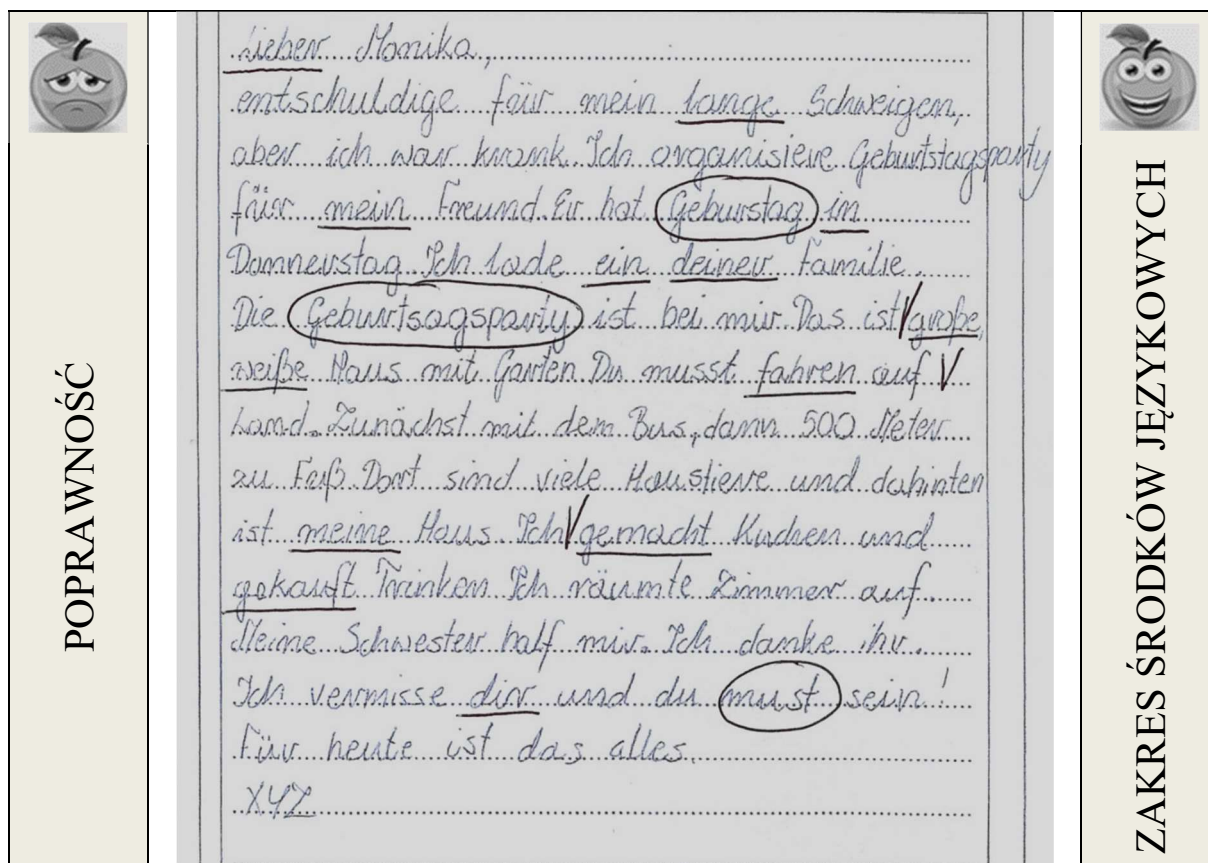 POPRAWNOŚĆ
Lieber Monika,
entschuldige für mein lange Schweigen,
aber ich war krank. Ich organisiere Geburtstagsparty
für mein Freund. Er hat Geburstag in
Donnerstag. Ich lade ein deiner Familie.
Die Geburtsagsparty ist bei mir. Das ist große,
weiße Haus mit Garten. Du musst fahren auf
Land. Zunächst mit dem Bus, dann 500 Meter
zu Fuß. Dort sind viele Haustiere und dahinten
ist meine Haus. Ich gemacht Kuchen und
gekauft Trinken. Ich räumte Zimmer auf.
Meine Schwester half mir. Ich danke ihr.
Ich vermisse dir und du must sein!
Für heute ist das alles.
XYZ
ZAKRES ŚRODKÓW JĘZYKOWYCH